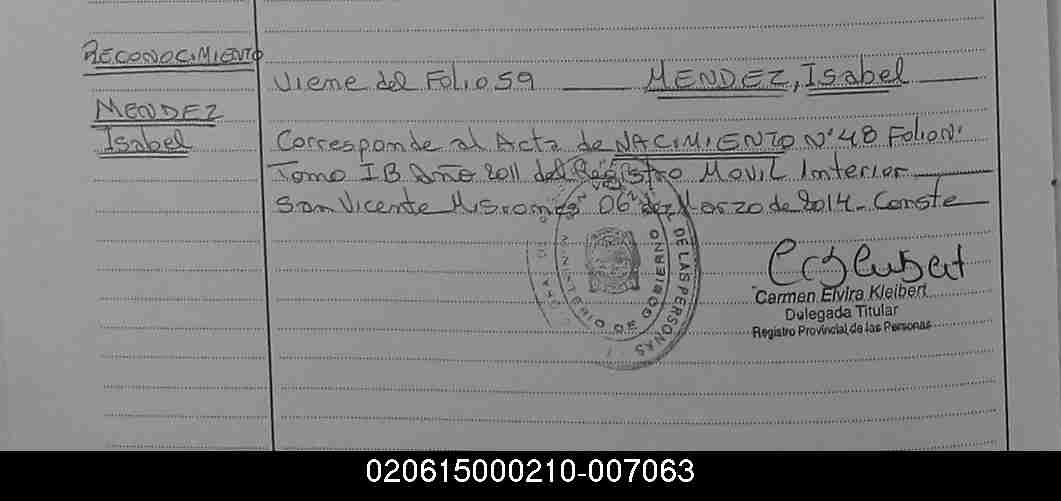 RECONOCIMIENTO
MENDEZ
Isabel
Viene del Folio 59 MENDEZ, Isabel
Corresponde al Acta de NACIMIENTO N° 48 Folio N°
Tomo I B Año 2011 del Registro Movil Interior
San Vicente Misiones 06 de Marzo de 2014 - Conste
DE LAS PERSONAS
MINISTERIO DE GOBIERNO
Carmen Elvira Kleibert
Delegada Titular
Registro Provincial de las Personas
020615000210-007063